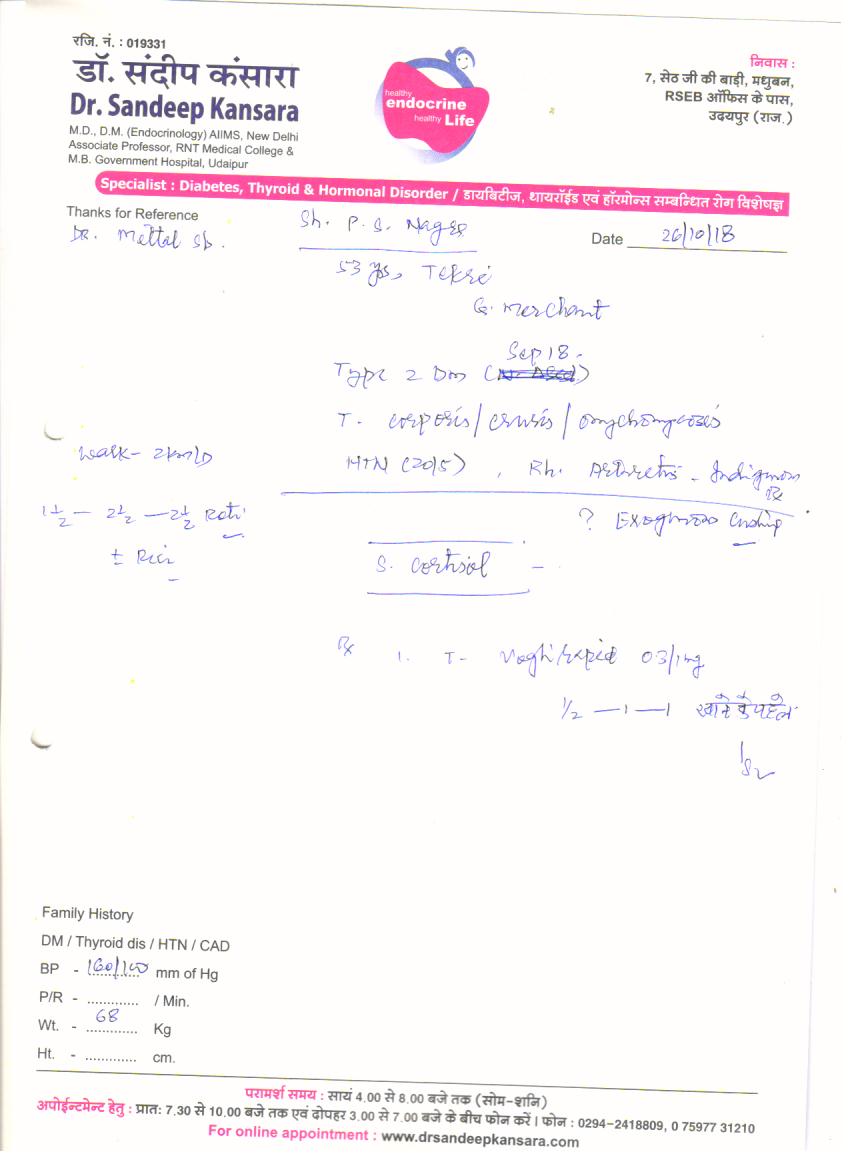 रजि. नं. : 019331
डॉ. संदीप कंसारा
Dr. Sandeep Kansara
M.D., D.M. (Endocrinology) AIIMS, New Delhi
Associate Professor, RNT Medical College &
M.B. Government Hospital, Udaipur
healthy
endocrine
healthy Life
निवास :
7, सेठ जी की बाड़ी, मधुबन,
RSEB ऑफिस के पास,
उदयपुर (राज.)
Specialist : Diabetes, Thyroid & Hormonal Disorder / डायबिटीज, थायरॉईड एवं हॉरमोन्स सम्बन्धित रोग विशेषज्ञ
Thanks for Reference
Dr. Mettal Sb.
Sh. P. S. Nagar
Date 26/10/18
53 ys, Tekri
G. Merchant
Sep 18.
Type 2 Dm
T. corporis / cruris /
Walk - 2km/D
HTN (2015) , Rh. Arthretis -
Rx
1½ - 2½ - 2½ Roti
? Cushing
± Rice
S. cortisol -
Rx 1. T-  03/1mg
1/2 - 1 - 1 खाने के पहले
Family History
DM / Thyroid dis / HTN / CAD
BP - 160/100 mm of Hg
P/R - ............. / Min.
Wt. - 68 Kg
Ht. - ............. cm.
परामर्श समय : सायं 4.00 से 8.00 बजे तक (सोम-शनि)
अपोईन्टमेन्ट हेतु : प्रातः 7.30 से 10.00 बजे तक एवं दोपहर 3.00 से 7.00 बजे के बीच फोन करें । फोन : 0294-2418809, 0 75977 31210
For online appointment : www.drsandeepkansara.com